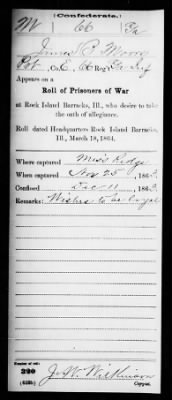 (Confederate.)
M 66 Ga
James P. Moore
Pvt, Co. E, 66 Reg't Ga Inf
Appears on a
Roll of Prisoners of War
at Rock Island Barracks, Ill., who desire to take
the oath of allegiance.
Roll dated Headquarters Rock Island Barracks,
Ill., March 18, 1864.
Where captured Miss Ridge
When captured Nov 25, 1863.
Confined Dec 11, 1863.
Remarks: Wishes to be loyal
Number of roll:
220
J. W. Wilkinson
Copyist.